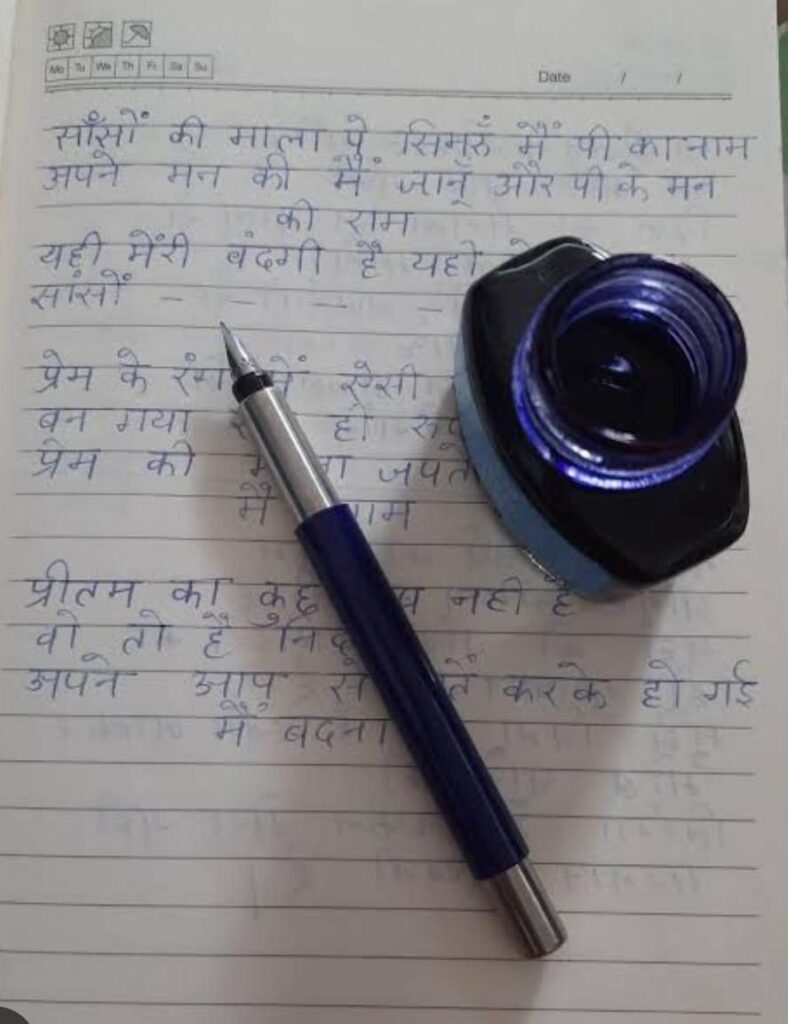 Mo Tu We Th Fr Sa Su
Date / /
साँसों की माला पे सिमरुँ मैं पी का नाम
अपने मन की मैं जानूँ और पी के मन
की राम
यही मेंरी बंदगी है यही
सांसों - - - -
प्रेम के रंग में ऐसी
बन गया ही
प्रेम की जपते
मैं
प्रीतम का कुछ नही है
वो तो है
अपने आप से करके हो गई
मैं